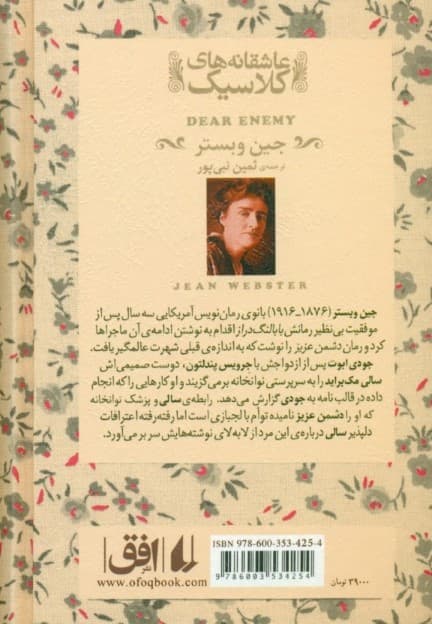 عاشقانه‌های
کلاسیک
DEAR ENEMY
جین وبستر
ترجمه‌ی ثمین نبی‌پور
JEAN WEBSTER
جین وبستر (۱۸۷۶_۱۹۱۶) بانوی رمان‌نویس آمریکایی سه سال پس از
موفقیت بی‌نظیر رمانش بابالنگ‌دراز اقدام به نوشتن ادامه‌ی آن ماجراها
کرد و رمان دشمن عزیز را نوشت که به اندازه‌ی قبلی شهرت عالمگیر یافت.
جودی ابوت پس از ازدواجش با جرویس پندلتون، دوست صمیمی‌اش
سالی مک‌براید را به سرپرستی نوانخانه برمی‌گزیند و او کارهایی را که انجام
داده در قالب نامه به جودی گزارش می‌دهد. رابطه‌ی سالی و پزشک نوانخانه
که او را دشمن عزیز نامیده توأم با لجبازی است اما رفته‌رفته اعترافات
دلپذیر سالی درباره‌ی این مرد از لابه‌لای نوشته‌هایش سر بر می‌آورد.
ISBN 978-600-353-425-4
9 786003 534254
نشر افق
www.ofoqbook.com
۳۹۰۰۰ تومان